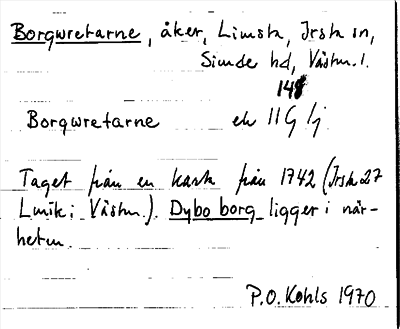 Borgwretarne, åker, Limsta, Irsta sn,
Siende hd, Västm. l.
148
Borgwretarne ek 11G lj
Taget från en karta från 1742 (Irsta 27
Lmk i Västm.). Dybo borg ligger i när-
heten.
P.O. Kohls 1970